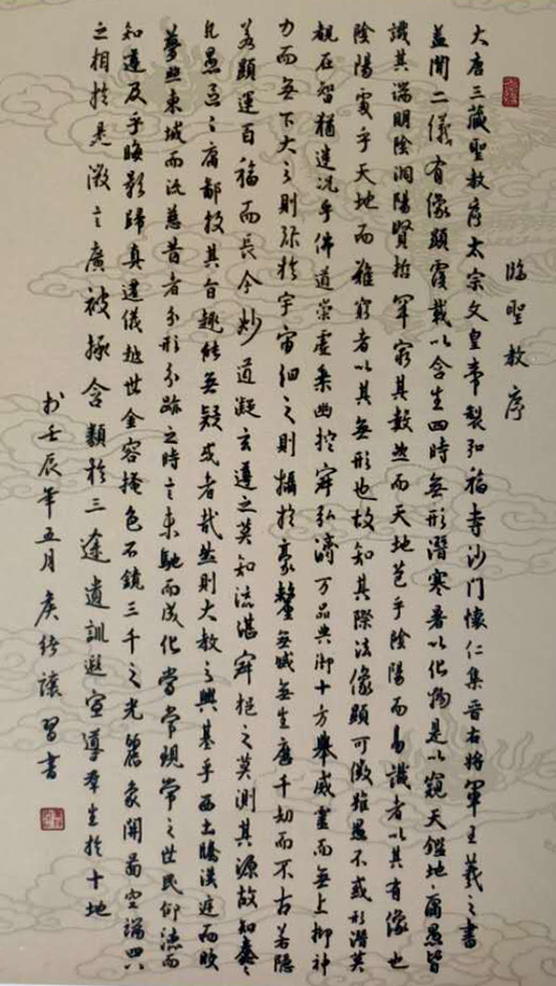 臨聖教序
大唐三藏聖教序太宗文皇帝製弘福寺沙門懷仁集晉右將軍王羲之書
蓋聞二儀有像顯覆載以含生四時無形潛寒暑以化物是以窺天鑑地庸愚皆
識其端明陰洞陽賢哲罕窮其數然而天地苞乎陰陽而易識者以其有像也
陰陽處乎天地而難窮者以其無形也故知其際法像顯可徵雖愚不惑形潛莫
覩在智猶迷況乎佛道崇虛乘幽控寂弘濟万品典御十方舉威靈而無上抑神
力而無下大之則弥於宇宙細之則攝於豪釐無滅無生歷千劫而不古若隱
若顯運百福而長今妙道凝玄遵之莫知流湛寂挹之莫測其源故知蠢々
凡愚區々庸鄙投其旨趣能無疑或者哉然則大教之興基乎西土騰漢庭而皎
夢照東域而流慈昔者分形分跡之時言未馳而成化當常現常之世民仰德而
知遵及乎晦影歸真遷儀越世金容掩色不鏡三千之光麗象開圖空端四八
之相於是微言廣被拯含類於三途遺訓遐宣導群生於十地
於壬辰年五月 讓習書